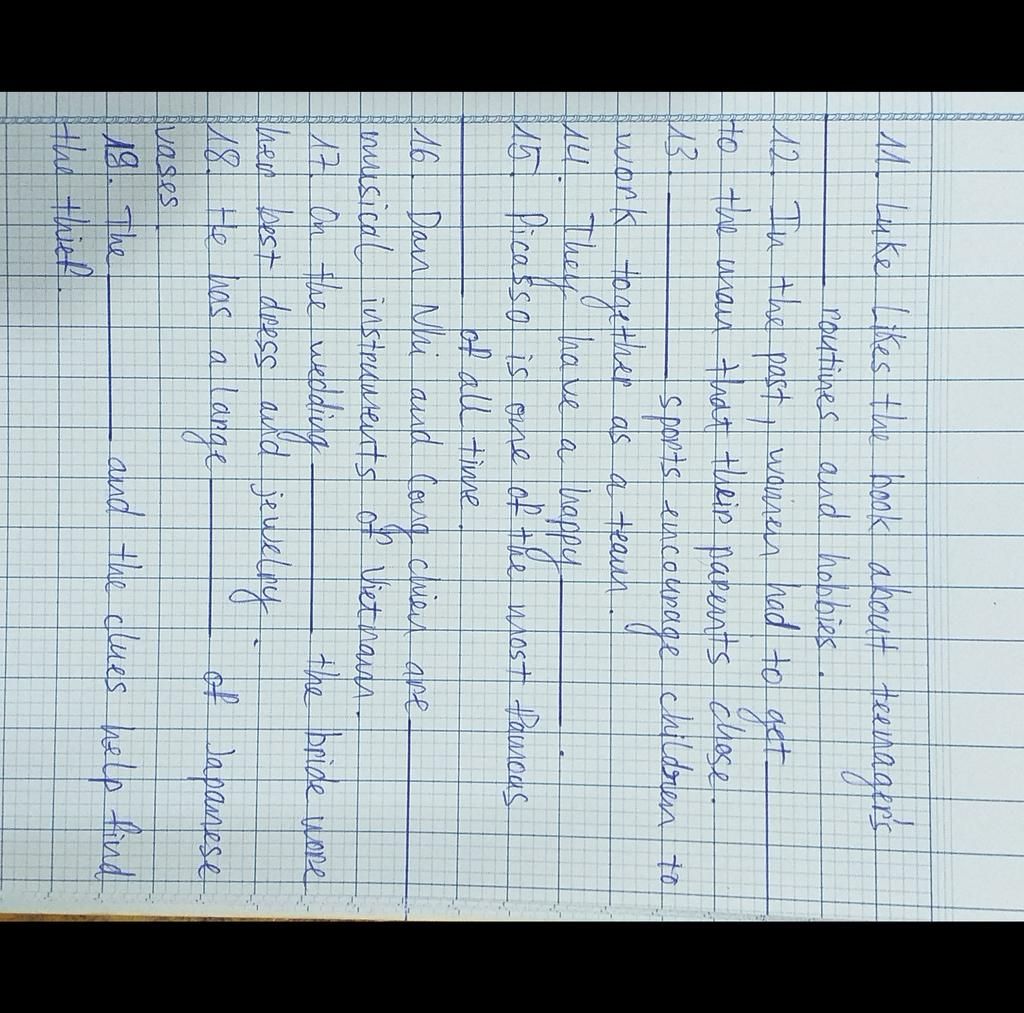 11. Luke likes the book about teenager's
______ routines and hobbies.
12. In the past, women had to get ______
to the man that their parents chose.
13. ______ sports encourage children to
work together as a team.
14. They have a happy ______.
15. Picasso is one of the most famous
______ of all time.
16. Dan Nhi and Cong chien are ______
musical instruments of Vietnam.
17. On the wedding ______ the bride wore
her best dress and jewelry.
18. He has a large ______ of Japanese
vases.
19. The ______ and the clues help find
the thief.